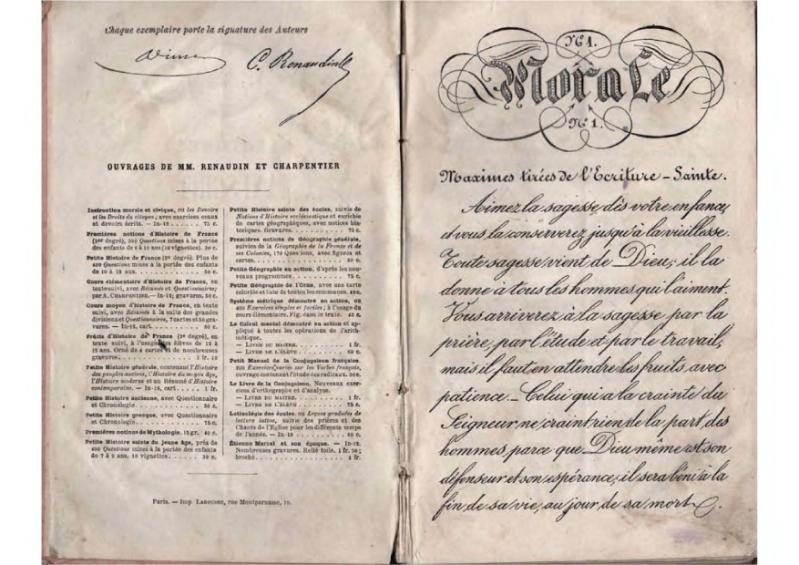 Chaque exemplaire porte la signature des Auteurs
C. Renaudin
OUVRAGES DE MM. RENAUDIN ET CHARPENTIER
Instruction morale et civique, ou les Devoirs
et les Droits du citoyen; avec exercices oraux
et devoirs écrits. — In-18 . . . . . . 75 c.
Premières notions d'Histoire de France
(1er degré), 200 Questions mises à la portée
Petite Histoire de France (2e degré). Plus de
400 Questions mises à la portée des enfants
Cours élémentaire d'Histoire de France, en
texte suivi, avec Résumés et Questionnaires;
par A. CHARPENTIER. — In-12; gravures. 50 c.
Cours moyen d'histoire de France, en texte
suivi, avec Résumés à la suite des grandes
divisions et Questionnaires, 7 cartes et 20 gra-
vures. — In-18, cart. . . . . . .
Précis d'Histoire de France (3e degré), en
texte suivi, à l'usage des élèves de 12 à
15 ans. Orné de 4 cartes et de nombreuses
gravures. . . . . . . 1 fr.
Petite Histoire générale, contenant l'Histoire
des peuples anciens, l'Histoire du moyen âge,
l'Histoire moderne et un Résumé d'Histoire
contemporaine. — In-18, cart. . . . 1 fr.
Petite Histoire ancienne, avec Questionnaire
et Chronologie
Petite Histoire grecque, avec Questionnaire
et Chronologie . . . . . . 75 c.
Premières notions de Mythologie. 15 gr.
Petite Histoire sainte du jeune âge, près de
400 Questions mises à la portée des enfants
de 7 à 9 ans. 10 vignettes
Petite Histoire sainte des écoles, suivie de
Notions d'Histoire ecclésiastique et enrichie
de cartes géographiques, avec notices his-
toriques. Gravures. . . . . . 75 c.
Premières notions de Géographie générale,
suivies de la Géographie de la France et de
ses Colonies, 170 Questions, avec figures et
cartes
Petite Géographie en action, d'après les nou-
veaux programmes . . . . . . 75 c.
Petite Géographie de l'Orne, avec une carte
coloriée et liste de toutes les communes.
Système métrique démontré en action, ou
Exercices simples et faciles; à l'usage du
cours élémentaire. Fig. dans le texte.
Le Calcul mental démontré en action et ap-
pliqué à toutes les opérations de l'arith-
métique.
— LIVRE DU MAITRE. . . . . . 1 fr.
— LIVRE DE L'ÉLÈVE
Petit Manuel de la Conjugaison française.
Exercices variés sur les Verbes français,
ouvrage contenant l'étude des radicaux.
Le Livre de la Conjugaison. Nouveaux exer-
cices d'orthographe et d'analyse.
— LIVRE DU MAITRE. . . . . . 1 fr.
— LIVRE DE L'ÉLÈVE . . . . . . 75 c.
ou Leçons graduées de
lecture latine, suivie des prières et des
Chants de l'Église pour les différents temps
de l'année. — In-18
Étienne Marcel et son époque. — In-12.
Nombreuses gravures. Relié toile, 1 fr. 50;
broché. . . . . . 1 fr.
Paris. — Imp. LAROUSSE, rue Montparnasse, 19.
No 1.
Morale
No 1.
Maximes tirées de l'Ecriture-Sainte.
Aimez la sagesse dès votre enfance,
et vous la conserverez jusqu'à la vieillesse.
Toute sagesse vient de Dieu; il la
donne à tous les hommes qui l'aiment.
Vous arriverez à la sagesse par la
prière, par l'étude et par le travail,
mais il faut en attendre les fruits avec
patience. — Celui qui a la crainte du
Seigneur ne craint rien de la part des
hommes parce que Dieu même est son
défenseur et son espérance; il sera béni à la
fin de sa vie, au jour de sa mort.